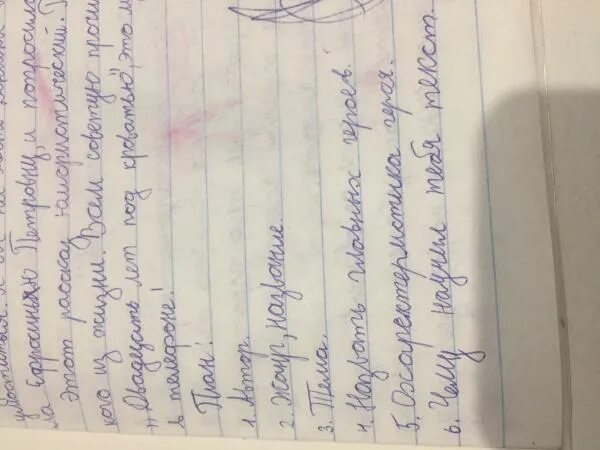 ла Ефросинью Петровну, и попросила
этот рассказ юмористический.
кого из жизни. Всем советую
"Двадцать лет под кроватью", это
в телефоне!
План:
1. Автор.
2. Жанр, название.
3. Тема.
4. Назвать главных героев.
5. Охарактермстика героя.
6. Чему научил тебя текст.